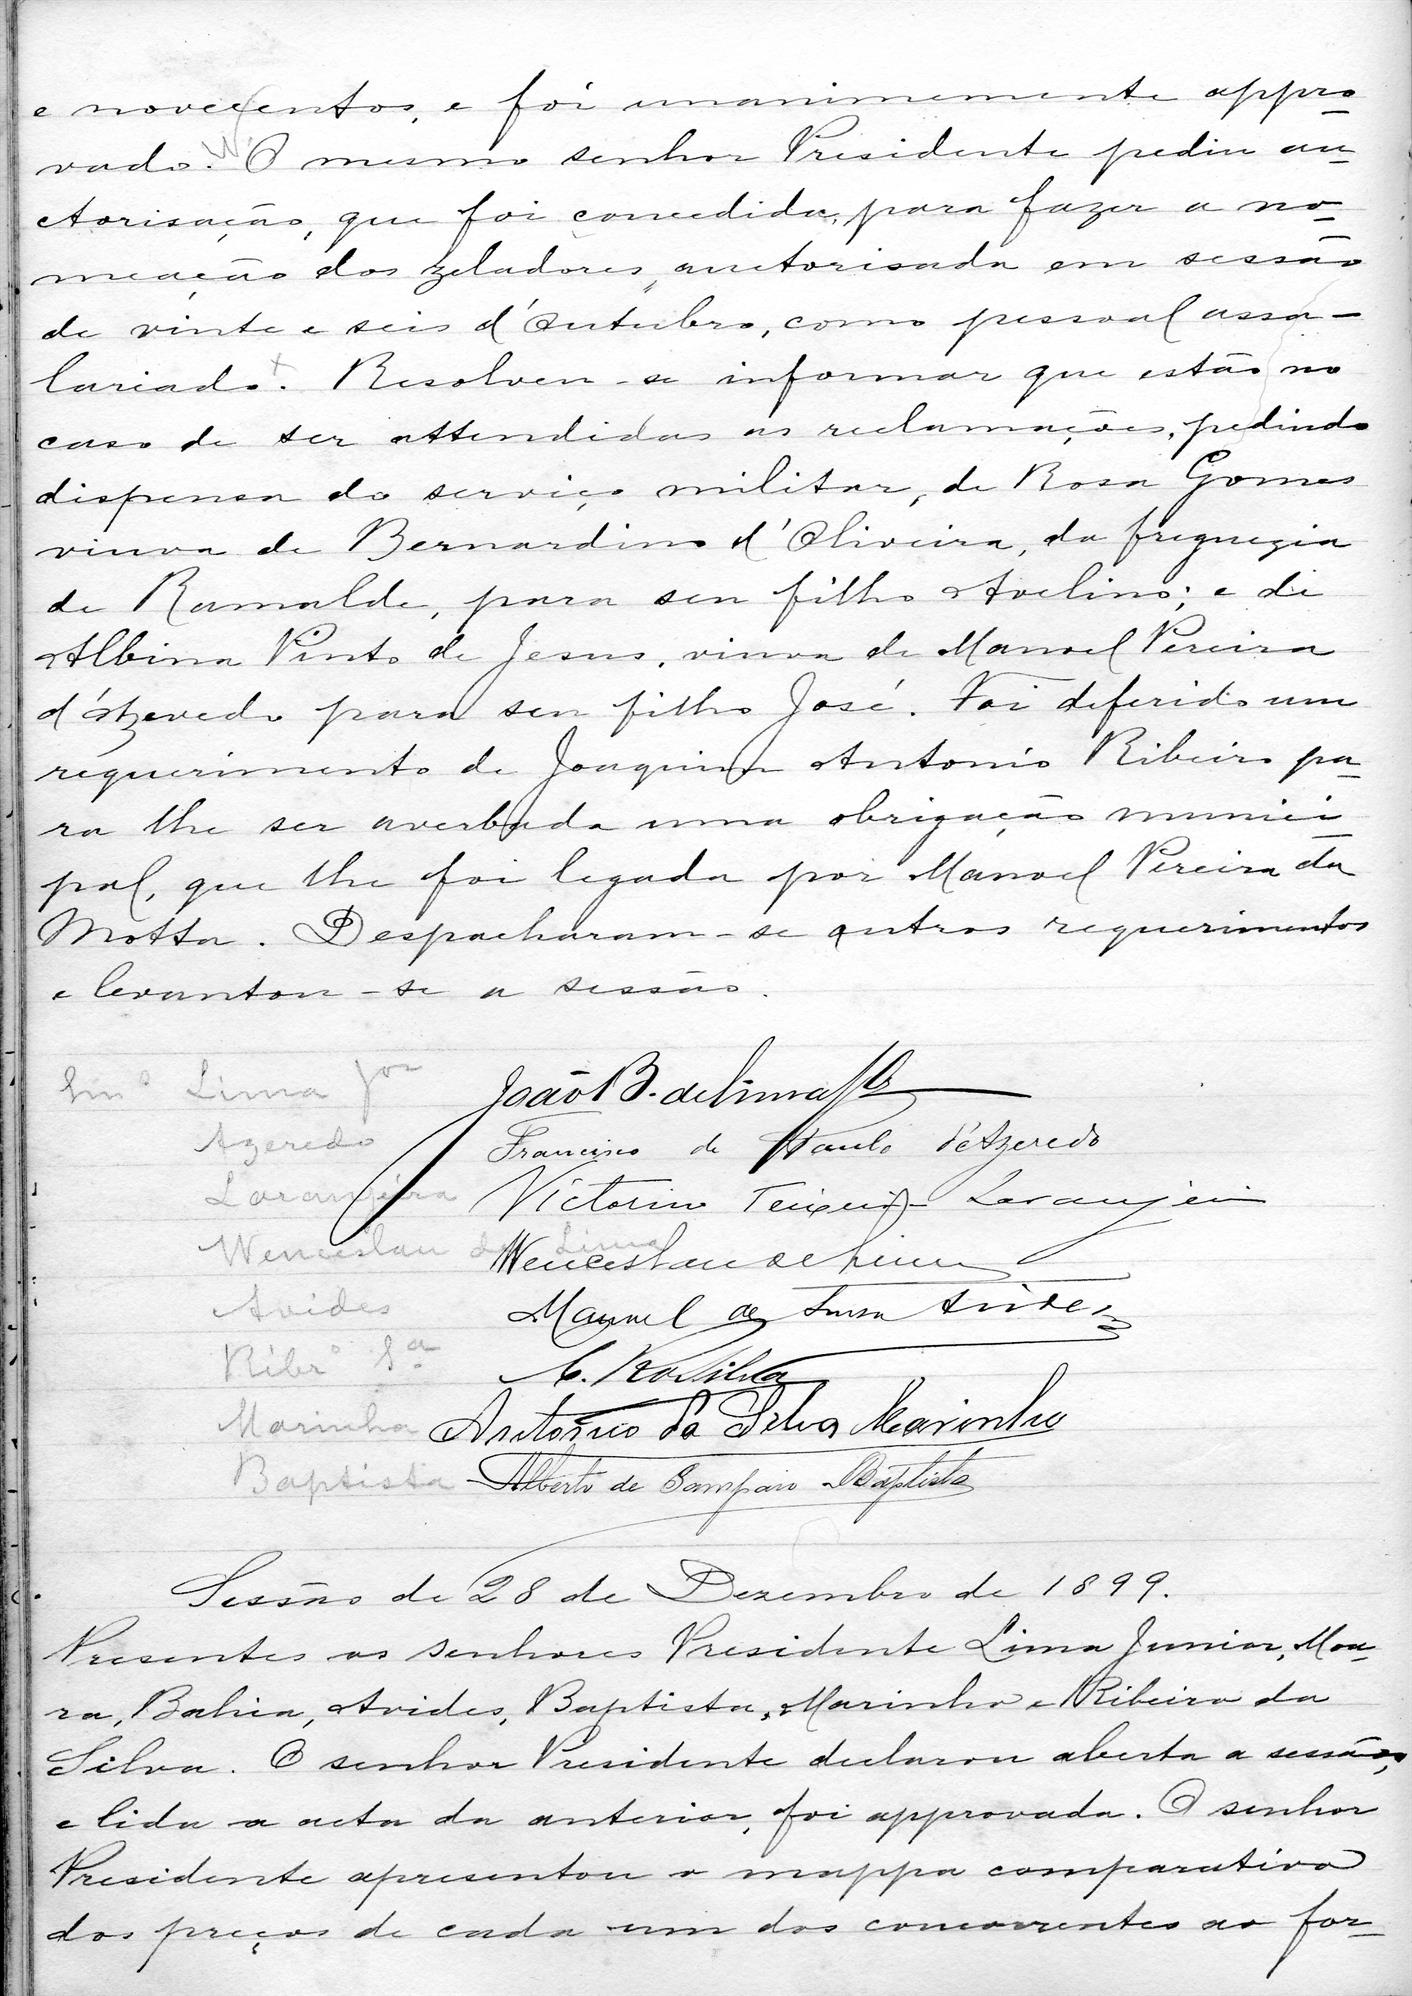 e novecentos, e foi unanimemente appro-
vado. O mesmo senhor Presidente pediu au-
ctorisação, que foi concedida, para fazer a no-
meação dos zeladores, auctorisada em sessão
de vinte e seis d'Outubro, como pessoal assa-
lariado. Resolveu-se informar que estão no
caso de ser attendidas as reclamações, pedindo
dispensa do serviço militar, de Rosa Gomes
viuva de Bernardino d'Oliveira, da freguezia
de Ramalde, para seu filho Avelino; e de
Albina Pinto de Jesus, viuva de Manoel Pereira
d'Azevedo para seu filho José. Foi deferido um
requerimento de Joaquim Antonio Ribeiro pa-
ra lhe ser averbada uma obrigação munici-
pal, que lhe foi legada por Manoel Pereira da
Motta. Despacharam-se outros requerimentos
e levantou-se a sessão.
Lima Jor João B. de Lima Jor
Azeredo Francisco de Paula d'Azeredo
Laranjeira Victorino Teixeira Laranjeira
Wenceslau de Lima Wenceslau de Lima
Avides Manuel de Sousa Avides
Ribro Sa C. Ro Silva
Marinho Antonio da Silva Marinho
Baptista Alberto de Sampaio Baptista
Sessão de 28 de Dezembro de 1899.
Presentes os senhores Presidente Lima Junior, Mou-
ra, Bahia, Avides, Baptista, Marinho e Ribeiro da
Silva. O senhor Presidente declarou aberta a sessão,
e lida a acta da anterior, foi approvada. O senhor
Presidente apresentou o mappa comparativo
dos preços de cada um dos concorrentes ao for-